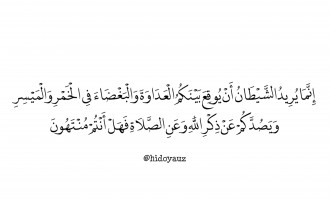 إِنَّمَا يُرِيدُ الشَّيْطَانُ أَنْ يُوقِعَ بَيْنَكُمُ الْعَدَاوَةَ وَالْبَغْضَاءَ فِي الْخَمْرِ وَالْمَيْسِرِ
وَيَصُدَّكُمْ عَنْ ذِكْرِ اللهِ وَعَنِ الصَّلَاةِ فَهَلْ أَنْتُمْ مُنْتَهُونَ
@hidoyauz